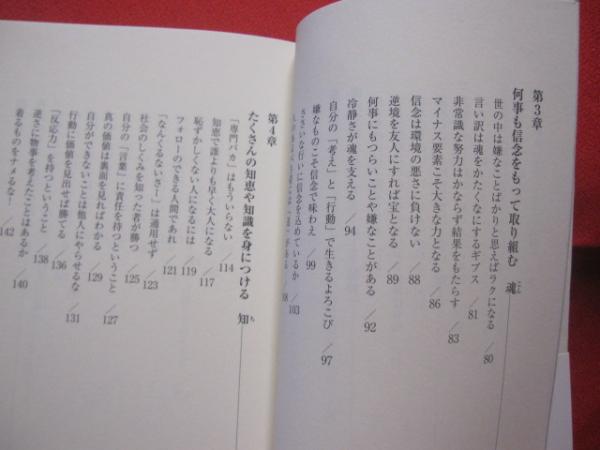 第3章
何事も信念をもって取り組む 魂 こん
世の中は嫌なことばかりと思えばラクになる /80
言い訳は魂をかたくなにするギブス /81
非常識な努力はかならず結果をもたらす /83
マイナス要素こそ大きな力となる /86
信念は環境の悪さに負けない /88
逆境を友人にすれば宝となる /89
何事にもつらいことや嫌なことがある /92
冷静さが魂を支える /94
自分の「考え」と「行動」で生きるよろこび /97
嫌なものこそ信念で味わえ /99
ささいな行いに信念を込めているか /103
第4章
たくさんの知恵や知識を身につける 知 ち
「専門バカ」はもういらない /114
知恵で誰よりも早く大人になる /117
恥ずかしくない人になるには /119
フォローのできる人間であれ /121
「なんくるないさ!」は通用せず /123
社会のしくみを知った者が勝つ /125
自分の「言葉」に責任を持つということ /127
真の価値は裏面を見ればわかる /129
自分ができないことは他人にやらせるな /131
行動に価値を見出せば勝てる /136
「反応力」を持つということ /138
逆さに物事を考えたことはあるか /140
着るものをナメるな! /142